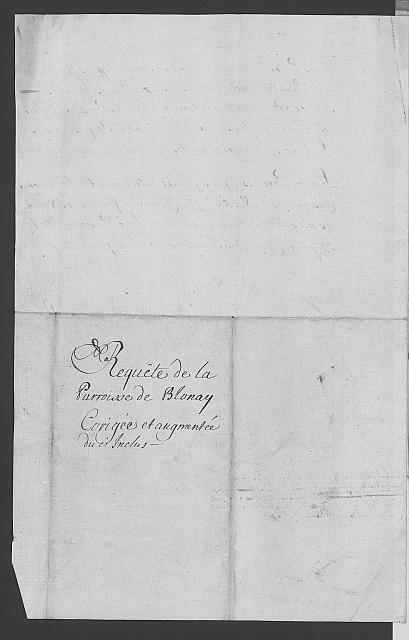 Requête de la
Parroisse de Blonay
Corigée et augmentée
du cy Inclus